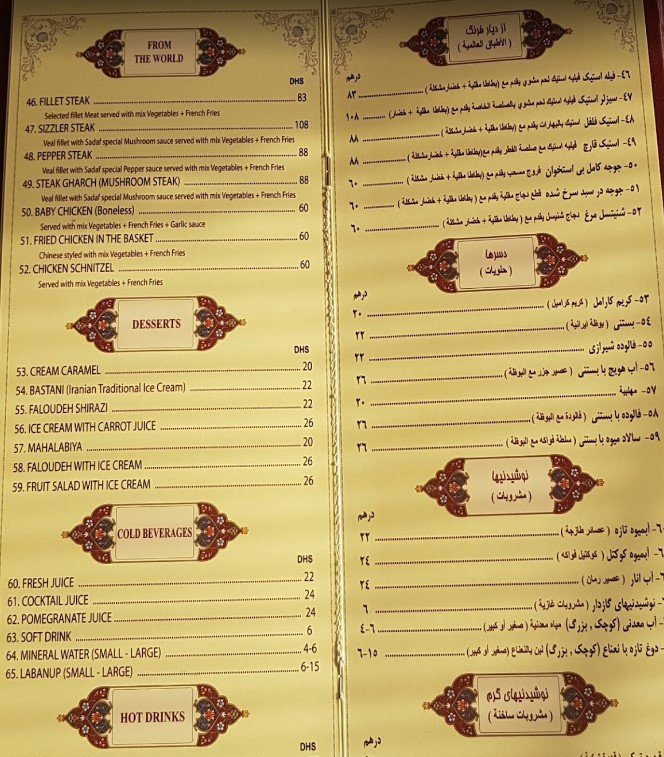 FROM
THE WORLD
DHS
46. FILLET STEAK 83
Selected fillet Meat served with mix Vegetables + French Fries
47. SIZZLER STEAK 108
Veal fillet with Sadaf special Mushroom sauce served with mix Vegetables + French Fries
48. PEPPER STEAK 88
Veal fillet with Sadaf special Pepper sauce served with mix Vegetables + French Fries
49. STEAK GHARCH (MUSHROOM STEAK) 88
Veal fillet with Sadaf special Mushroom sauce served with mix Vegetables + French Fries
50. BABY CHICKEN (Boneless) 60
Served with mix Vegetables + French Fries + Garlic sauce
51. FRIED CHICKEN IN THE BASKET 60
Chinese styled with mix Vegetables + French Fries
52. CHICKEN SCHNITZEL 60
Served with mix Vegetables + French Fries
DESSERTS
DHS
53. CREAM CARAMEL 20
54. BASTANI (Iranian Traditional Ice Cream) 22
55. FALOUDEH SHIRAZI 22
56. ICE CREAM WITH CARROT JUICE 26
57. MAHALABIYA 20
58. FALOUDEH WITH ICE CREAM 26
59. FRUIT SALAD WITH ICE CREAM 26
COLD BEVERAGES
DHS
60. FRESH JUICE 22
61. COCKTAIL JUICE 24
62. POMEGRANATE JUICE 24
63. SOFT DRINK 6
64. MINERAL WATER (SMALL - LARGE) 4-6
65. LABANUP (SMALL - LARGE) 6-15
HOT DRINKS
DHS
از دیار فرنگ
(الأطباق العالمية)
درهم
٤٦- فیله استیک فيليه استيك لحم مشوي يقدم مع (بطاطا مقلية + خضار مشكلة) ٨٣
٤٧- سیزلر استیک فيليه استيك لحم مشوي بالصلصة الخاصة يقدم مع (بطاطا مقلية + خضار) ١٠٨
٤٨- استیک فلفل استيك بالبهارات يقدم مع (بطاطا مقلية + خضار مشكلة) ٨٨
٤٩- استیک قارچ فيليه استيك مع صلصة الفطر يقدم مع (بطاطا مقلية + خضار مشكلة) ٨٨
٥٠- جوجه کامل بی استخوان فروج مسحب يقدم مع (بطاطا مقلية + خضار مشكلة) ٦٠
٥١- جوجه در سبد سرخ شده قطع دجاج مقلية يقدم مع (بطاطا مقلية + خضار مشكلة) ٦٠
٥٢- شنیتسل مرغ دجاج شنيسل يقدم مع (بطاطا مقلية + خضار مشكلة) ٦٠
دسرها
(حلويات)
درهم
٥٣- کریم کارامل (كريم كراميل) ٢٠
٥٤- بستنی (بوظة ايرانية) ٢٢
٥٥- فالوده شیرازی ٢٢
٥٦- آب هویج با بستنی (عصير جزر مع البوظة) ٢٦
٥٧- مهلبية ٢٠
٥٨- فالوده با بستنی (فالودة مع البوظة) ٢٦
٥٩- سالاد میوه با بستنی (سلطة فواكه مع البوظة) ٢٦
نوشیدنیها
(مشروبات)
درهم
آبمیوه تازه (عصائر طازجة) ٢٢
آبمیوه کوکتل (كوكتيل فواكه) ٢٤
آب انار (عصير رمان) ٢٤
نوشیدنیهای گازدار (مشروبات غازية) ٦
آب معدنی (کوچک , بزرگ) مياه معدنية (صغير أو كبير) ٤-٦
دوغ تازه با نعناع (کوچک , بزرگ) لبن بالنعناع (صغير أو كبير) ٦-١٥
نوشیدنیهای گرم
(مشروبات ساخنة)
درهم